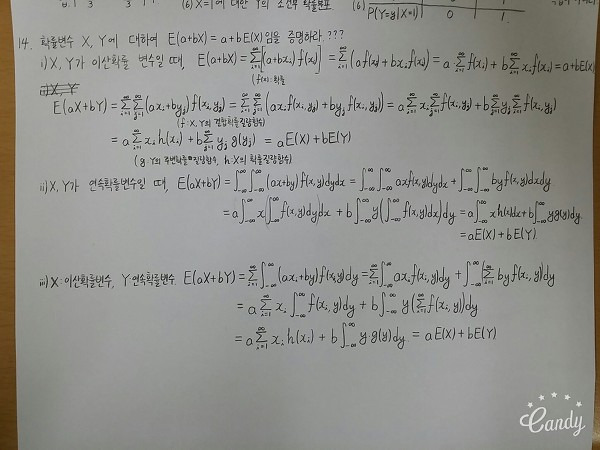 (6) X=1에 대한 Y의 조건부 확률분포
P(Y=y|X=1) 0 1
14. 확률변수 X, Y에 대하여 E(a+bX) = a+bE(X)임을 증명하라.???
i) X, Y가 이산확률 변수일 때, E(a+bX) = ∑_{i=1}^{∞}[(a+bx_i) f(x_i)] = ∑_{i=1}^{∞}(a f(x_i) + bx_i f(x_i)) = a·∑_{i=1}^{∞} f(x_i) + b∑_{i=1}^{∞} x_i f(x_i) = a+bE(X)
E(aX+bY) = ∑_{i=1}^{∞}∑_{j=1}^{∞}(ax_i+by_j) f(x_i,y_j) = ∑_{i=1}^{∞}∑_{j=1}^{∞}(ax_i f(x_i,y_j) + by_j f(x_i,y_j)) = a∑_{i=1}^{∞} x_i ∑_{j=1}^{∞} f(x_i,y_j) + b∑_{j=1}^{∞} y_j ∑_{i=1}^{∞} f(x_i,y_j)
(f: X,Y의 결합확률질량함수)
= a∑_{i=1}^{∞} x_i h(x_i) + b∑_{j=1}^{∞} y_j g(y_j) = aE(X)+bE(Y)
(g: Y의 주변확률질량함수, h: X의 확률질량함수)
ii) X, Y가 연속확률변수일 때, E(aX+bY) = ∫_{-∞}^{∞}∫_{-∞}^{∞}(ax+by) f(x,y)dydx = ∫_{-∞}^{∞}∫_{-∞}^{∞} axf(x,y)dydx + ∫_{-∞}^{∞}∫_{-∞}^{∞} by f(x,y)dxdy
= a∫_{-∞}^{∞} x(∫_{-∞}^{∞} f(x,y)dy)dx + b∫_{-∞}^{∞} y(∫_{-∞}^{∞} f(x,y)dx)dy = a∫_{-∞}^{∞} xh(x)dx + b∫_{-∞}^{∞} yg(y)dy
= aE(X)+bE(Y)
iii) X: 이산확률변수, Y: 연속확률변수. E(aX+bY) = ∑_{i=1}^{∞}∫_{-∞}^{∞}(ax_i+by) f(x_i,y)dy = ∑_{i=1}^{∞}∫_{-∞}^{∞} ax_i f(x_i,y)dy + ∫_{-∞}^{∞}(∑_{i=1}^{∞} by f(x_i,y))dy
= a∑_{i=1}^{∞} x_i ∫_{-∞}^{∞} f(x_i,y)dy + b∫_{-∞}^{∞} y(∑_{i=1}^{∞} f(x_i,y))dy
= a∑_{i=1}^{∞} x_i h(x_i) + b∫_{-∞}^{∞} y·g(y)dy = aE(X)+bE(Y)
Candy